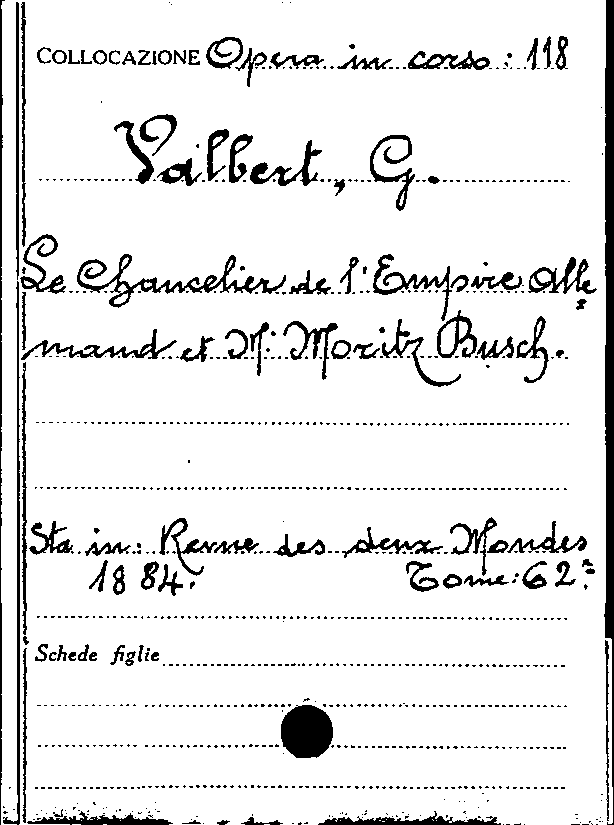 COLLOCAZIONE Opera in corso: 118
Valbert, G.
Le Chancelier de l'Empire Alle=
mand et M. Moritz Busch.
Sta in: Revue des deux Mondes
1884. Tome: 62.
Schede figlie